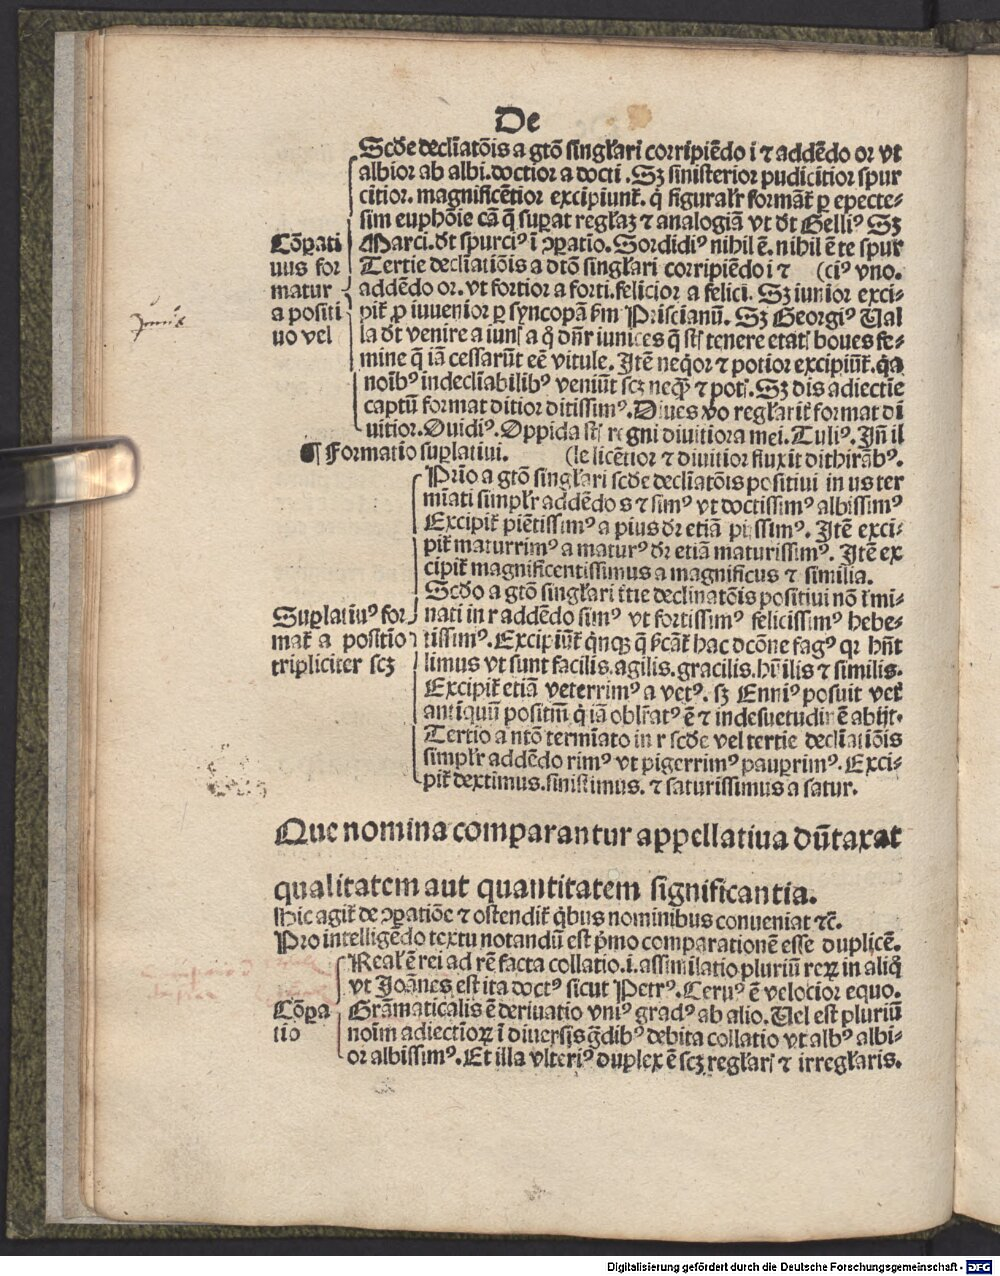 De
Scd̃e decl̃iatõis a gtõ singl̃ari corripiẽdo i ⁊ addẽdo or vt
albior ab albi.doctior a docti. Sꝫ sinisterior pudicitior spur
citior. magnificẽtior excipiunt̃. q̃ figural̃r formãt̃ ꝑ epecte-
sim euphõie cã q̃ suꝑat regl̃aꝫ ⁊ analogiã vt dt̃ Belliꝰ Sꝫ
Marci.dt̃ spurciꝰ i ꝯꝑatio.Sordidiꝰ nihil ẽ. nihil ẽ te spur
Tertie decl̃iatiõis a dtõ singl̃ari corripiẽdo i ⁊ (ciꝰ vno.
addẽdo or. vt fortior a forti.felicior a felici. Sꝫ iunior exci-
pit̃ ꝓ iuuenior ꝑ syncopã ẜm Priscianũ. Sꝫ Georgiꝰ Val
la dt̃ venire a
tenere etatꝭ boues fe-
mine q̃ iã cessarũt eẽ vitule. Itẽ neq̃or ⁊ potior excipiũt̃.q̃a
noĩbꝰ indecl̃iabilibꝰ veniũt scꝫ neq̃ꝫ ⁊ potꝭ. Sꝫ dis adiectie
captũ format ditior ditissimꝰ. Diues ꝟo regl̃arit̃ format di
uitior.Ouidiꝰ. Oppida st̃ regni diuitiora mei. Tuliꝰ. In̄ il
(le licẽtior ⁊ diuitior fluxit dithirãbꝰ.
Cõꝑati
uus for
matur
a positi
uo vel
¶ Formatio suꝑlatiui.
Primo a gtõ singl̃ari scd̃e decl̃iatõis positiui in us ter
mĩati simpl̃r addẽdo s ⁊ simꝰ vt doctissimꝰ albissimꝰ
Excipit̃ piẽtissimꝰ a pius dr̃ etiã pijssimꝰ. Itẽ exci-
pit̃ maturrimꝰ a maturꝰ dr̃ etiã maturissimꝰ. Itẽ ex
cipit̃ magnificentissimus a magnificus ⁊ similia.
Scd̃o a gtõ singl̃ari t̃tie declinatõis positiui nõ t̃mi-
nati in r addẽdo simꝰ vt fortissimꝰ felicissimꝰ hebe-
tissimꝰ.Excipiũt̃ q̃nqꝫ
hac dcõne fagꝰ qꝛ hñt
limus vt sunt facilis.agilis.gracilis.hũilis ⁊ similis.
Excipit̃ etiã veterrimꝰ a vetꝰ. sꝫ Enniꝰ posuit vet̃
antiquũ
q̃ iã obl̃ratꝰ ẽ ⁊ indesuetudinẽ abijt.
Tertio a ntõ termĩato in r scd̃e vel tertie decl̃iatiõis
simpl̃r addẽdo rimꝰ vt pigerrimꝰ pauꝑrimꝰ. Exci-
pit̃ dextimus.sinistimus. ⁊ saturissimus a satur.
Suꝑlatiuꝰ for
mat̃ a positio
tripliciter scꝫ
Que nomina comparantur appellatiua dũtaxat
qualitatem aut quantitatem significantia.
Hic agit̃ de ꝯꝑatiõe ⁊ ostendit̃ q̃bus nominibus conueniat ⁊c̃.
Pro intelligẽdo textu notandũ est p̃mo comparationẽ esse duplicẽ.
Real̃ ẽ rei ad rẽ facta collatio.i.assimilatio pluriũ reꝝ in aliq̃
vt Joãnes est ita doctꝰ sicut Petrꝰ.Ceruꝰ ẽ velocior equo.
Grãmaticalis ẽ deriuatio vniꝰ gradꝰ ab alio.Vel est pluriũ
noĩm adiectiõꝝ ĩ diuersis g̃dibꝰ debita collatio vt albꝰ albi-
or albissimꝰ.Et illa vlteriꝰ duplex ẽ scꝫ regl̃arꝭ ⁊ irregl̃aris.
Cõꝑa
tio
Digitalisierung gefördert durch die Deutsche Forschungsgemeinschaft - DFG